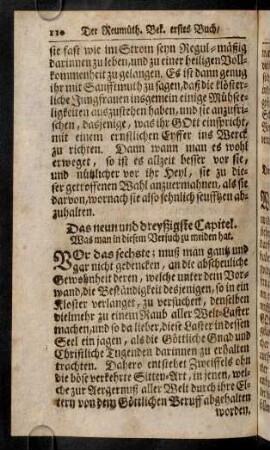 110 Der Reumüth. Bek. erstes Buch/
sie fast wie im Strom seyn Regul-mäßig
darinnen zu leben, und zu einer heiligen Voll-
kommenheit zu gelangen, Es ist dann genug
ihr mit Sanfftmuth zu sagen, daß die klöster-
liche Jungfrauen insgemein einige Mühsee-
ligkeiten auszustehen haben, und sie anzufri-
schen, dasjenige, was ihr GOtt einspricht,
mit einem ernstlichen Eyffer ins Werck
zu richten. Dann wann man es wohl
erweget, so ist es allzeit besser vor sie,
und nützlicher vor ihr Heyl, sie zu die-
ser getroffenen Wahl anzuermahnen, als sie
darvon, wornach sie also sehnlich seufftzen ab-
zuhalten.
Das neun und dreyßigste Capitel.
Was man in diesem Versuch zu meiden hat.
VOr das sechste: muß man gantz und
gar nicht gedencken, an die abscheuliche
Gewohnheit deren, welche unter dem Vor-
wand, die Beständigkeit desjenigen, so in ein
Kloster verlanget, zu versuchen, denselben
vielmehr zu einem Raub aller Welt-Laster
machen, und so da lieber, diese Laster in dessen
Seel ein jagen, als die Göttliche Gnad und
Christliche Tugenden darinnen zu erhalten
trachten. Dahero entstehet Zweiffels ohn
die böse verkehrte Sitten-Art, in jenen, wel-
che zur Aergernuß aller Welt durch ihre El-
tern von dem Göttlichen Beruff abgehalten
worden,